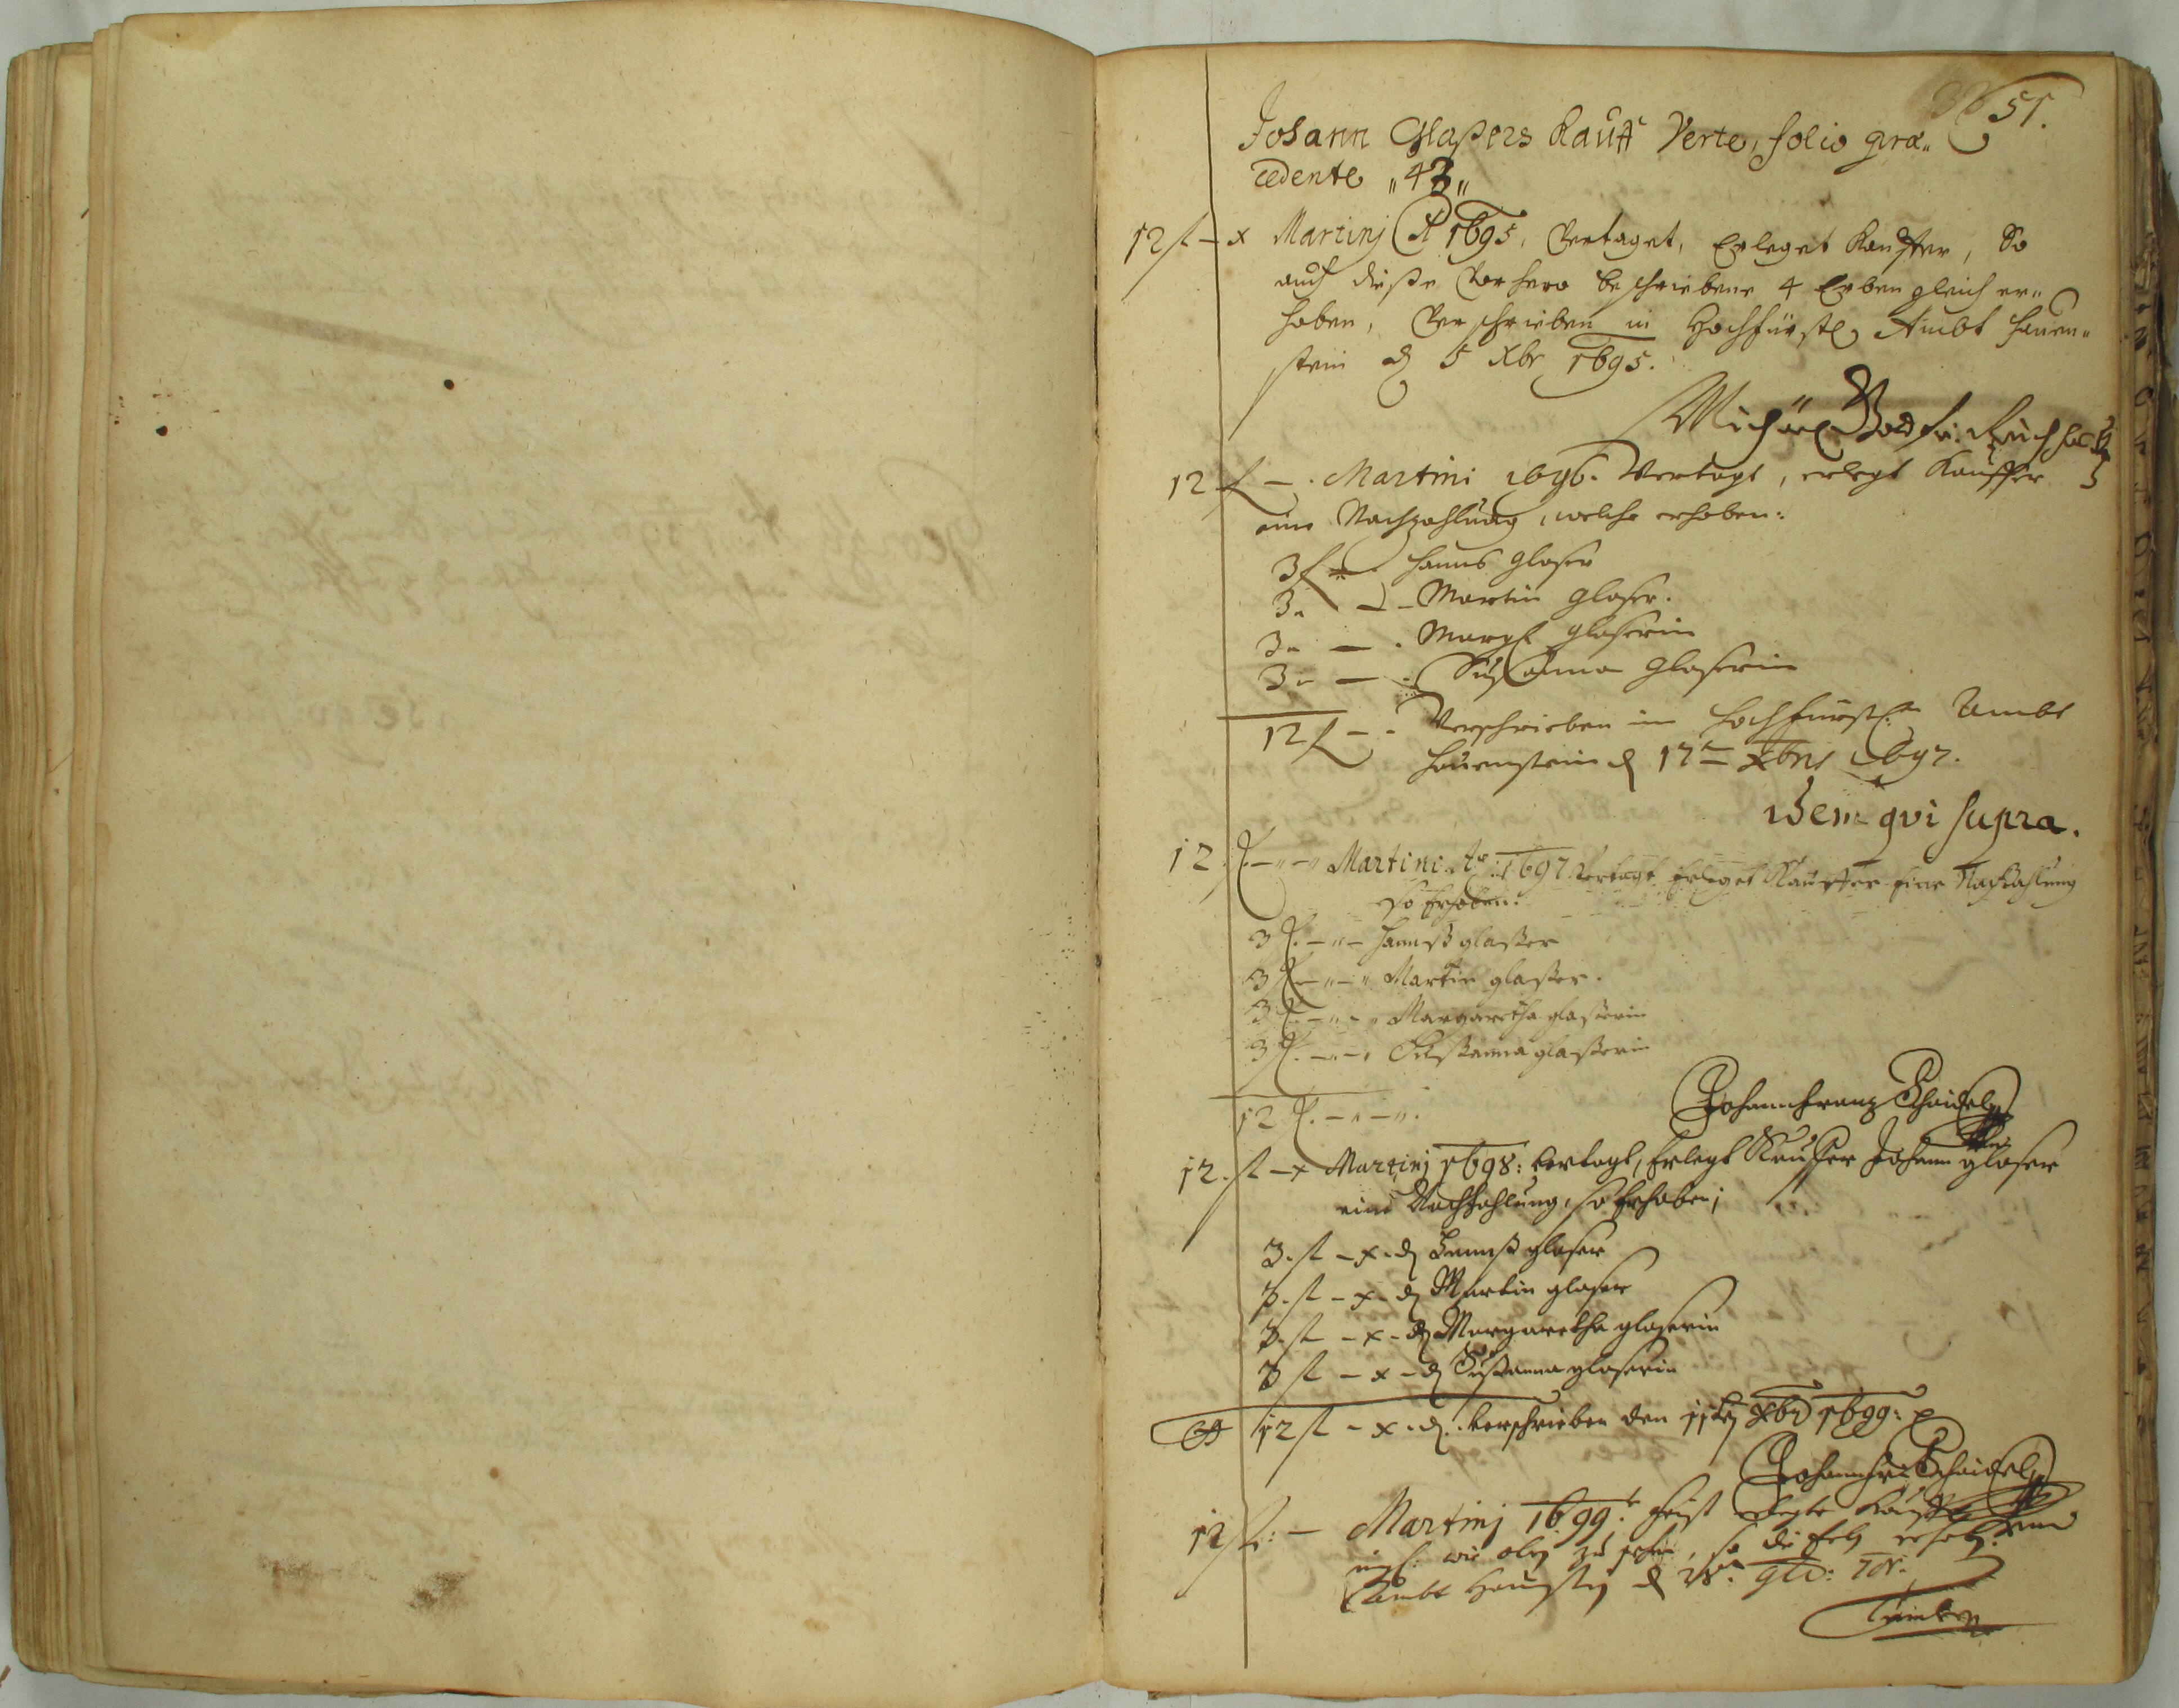 51.
Johann Glaßers Kauff Verte, folio præ„
cedente „43„
12 f – x Martinj A 1695, Vertaget, Erleget Kauffer, So
auch dieße vorhero beschriebene 4 Erben gleich er„
haben, Verschrieben in Hochfürstl Ambt Hauen„
stein d 5 Xbr 1695.
Michäel
12 f – . Martini 1696. Vertagt, erlegt Kauffer
eine Nachzahlung, welche erhoben:
3 f – . Hanns Glaser
3 „ – – Martin Glaser.
3 „ – . Margl Glaserin
3 „ – . Susanna Glaserin
12 f – . Verschrieben im Hochfürstl: Ambt
Hauenstein d 17 Xbris 1697.
idem qvi supra.
12 f. – „ – „ Martini Ao 1697 Vertagt Erleget Kauffer eine Nachzahlung
so Erhoben.
3 f. – „ – Hannß glaßer
3 f. – „ – „ Martin glaßer.
3 f. – „ – „ Margaretha glaßerin
3 f. – „ – „ Sußanna glaßerin
12 f. – „ – „.
Johann Franz Schaidel
12. f – x Martinj 1698: vertagt, Erlegt Kauffer Johann glaser
eine Nachzahlung, so Erhoben;
3. f – x – d Hannß glaser
3. f – x – d Martin glaser
3. f – x – d Margaretha glaserin
3 f – x – d Sußanna glaserin
12 f – x – d. verschrieben den 11 Xbr 1699:
Johann Fr: Schaidel
12 f: – Martinj 1699: frist Kauffer
wie oben zu sehen, so die Erben
Ambt d 28.